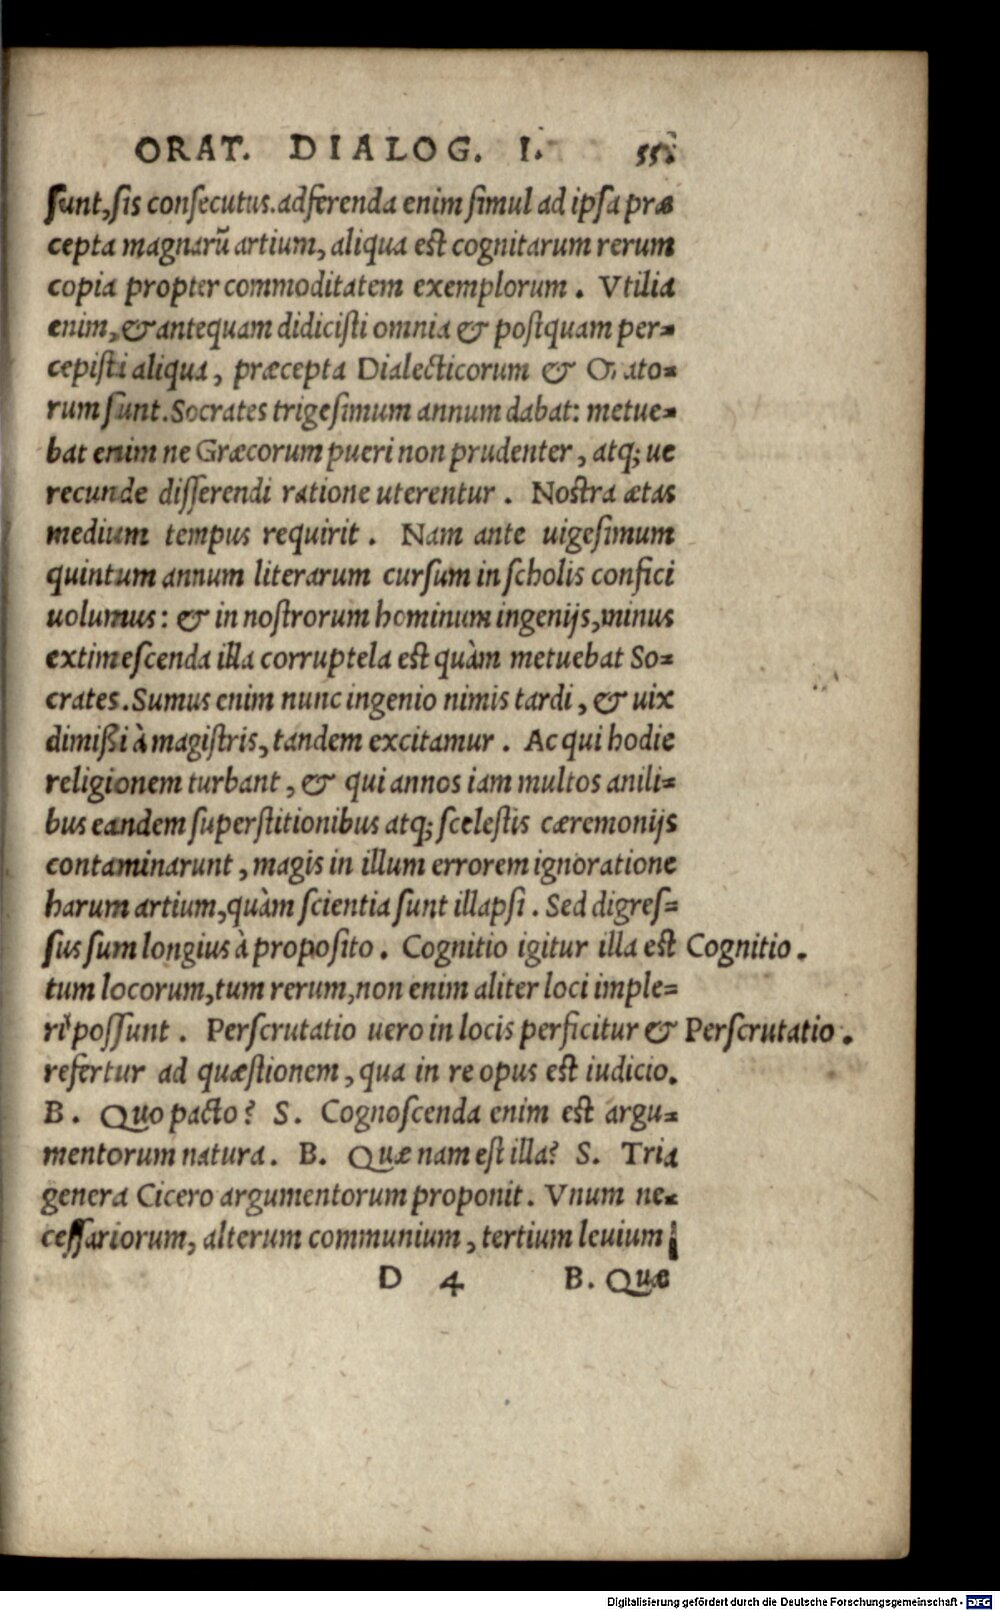 ORAT. DIALOG. I. 55.
sunt, sis consecutus. adferenda enim simul ad ipsa præ
cepta magnarũ artium, aliqua est cognitarum rerum
copia propter commoditatem exemplorum. Vtilia
enim, & antequam didicisti omnia & postquam per-
cepisti aliqua, præcepta Dialecticorum & Orato-
rum sunt. Socrates trigesimum annum dabat: metue-
bat enim ne Græcorum pueri non prudenter, atq; ue
recunde disserendi ratione uterentur. Nostra ætas
medium tempus requirit. Nam ante uigesimum
quintum annum literarum cursum in scholis confici
uolumus: & in nostrorum hominum ingenijs, minus
extimescenda illa corruptela est quàm metuebat So-
crates. Sumus enim nunc ingenio nimis tardi, & uix
dimißi à magistris, tandem excitamur. Ac qui hodie
religionem turbant, & qui annos iam multos anili-
bus eandem superstitionibus atq; scelestis cæremonijs
contaminarunt, magis in illum errorem ignoratione
harum artium, quàm scientia sunt illapsi. Sed digres-
sus sum longius à proposito. Cognitio igitur illa est Cognitio.
tum locorum, tum rerum, non enim aliter loci imple-
ri possunt. Perscrutatio uero in locis perficitur & Perscrutatio.
refertur ad quæstionem, qua in re opus est iudicio.
B. Quo pacto? S. Cognoscenda enim est argu-
mentorum natura. B. Quæ nam est illa? S. Tria
genera Cicero argumentorum proponit. Vnum ne-
cessariorum, alterum communium, tertium leuium.
D 4 B. Quæ
Digitalisierung gefördert durch die Deutsche Forschungsgemeinschaft - DFG